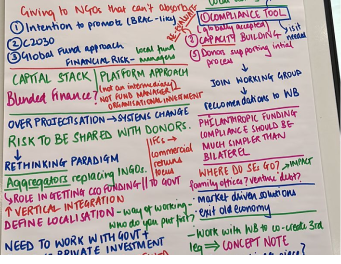 Giving to NGOs that can't absorb
① Intention to promote (BRAC-like)
② C2030
③ Global Fund approach
local fund managers
FINANCIAL RISK-
CAPITAL STACK,
Blended Finance?
PLATFORM APPROACH
(not an intermediary)
NOT FUND MANAGER
ORGANISATIONAL INVESTMENT
OVER PROJECTISATION → SYSTEMS CHANGE
RISK TO BE SHARED WITH DONORS.
RETHINKING PARADIGM
IFCs →
commercial
return
focus
Aggregators replacing INGOs.
ROLE IN GETTING CO FUNDING // TO GOVT
↑ VERTICAL INTEGRATION
DEFINE LOCALISATION - way of working -
Who do you put first?
NEED TO WORK WITH GOVT +
PRIVATE INVESTMENT
① COMPLIANCE TOOL
(globally accepted)
is it needed
② CAPACITY BUILDING
⑤ Donors supporting initial
process
JOIN WORKING GROUP
reccomendations to WB
PHILANTHROPIC FUNDING
COMPLIANCE SHOULD BE
MUCH SIMPLER THAN
BILATERAL
WHERE DO SEs GO?
IMPACT
family offices? venture debt?
- market driven solutions
- exit old economy
- Work with WB to co-create 3rd
leg ⇒ CONCEPT NOTE